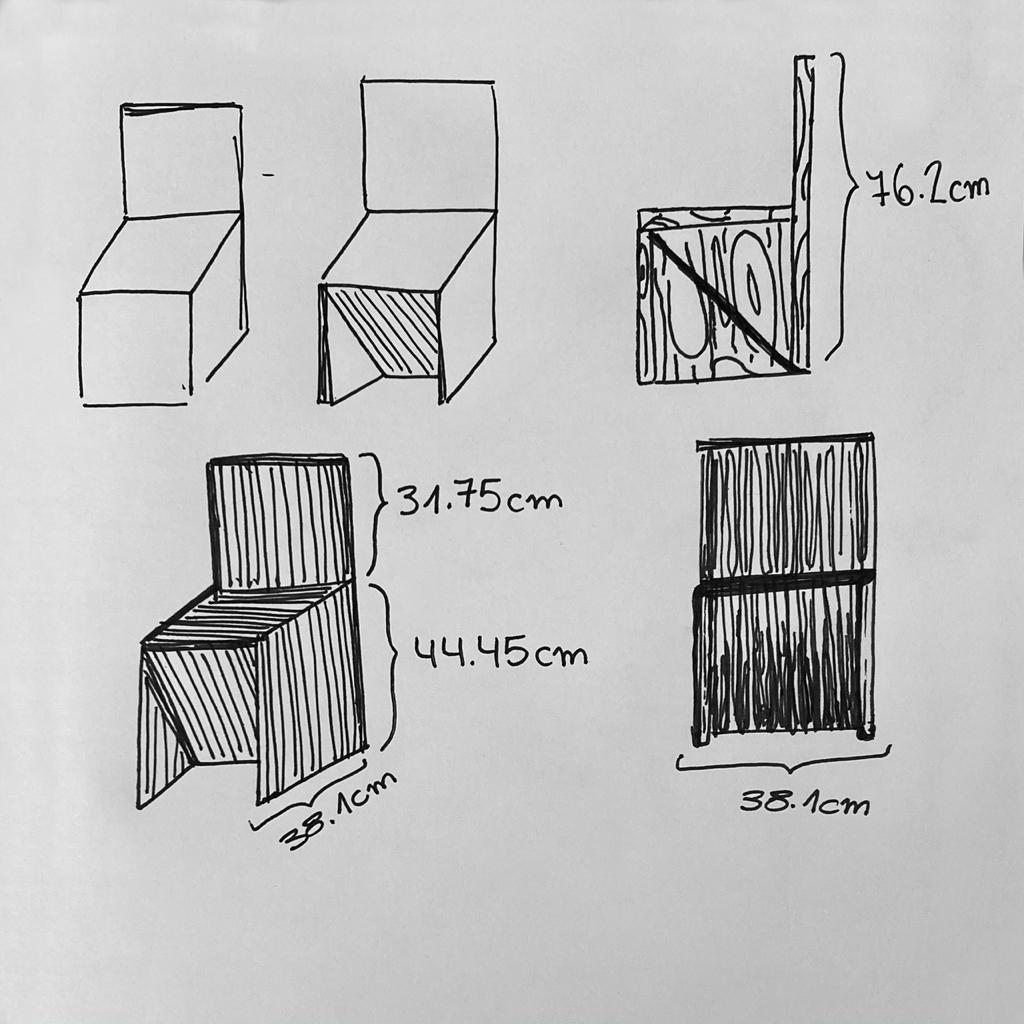 76.2cm
31.75cm
44.45cm
38.1cm
38.1cm